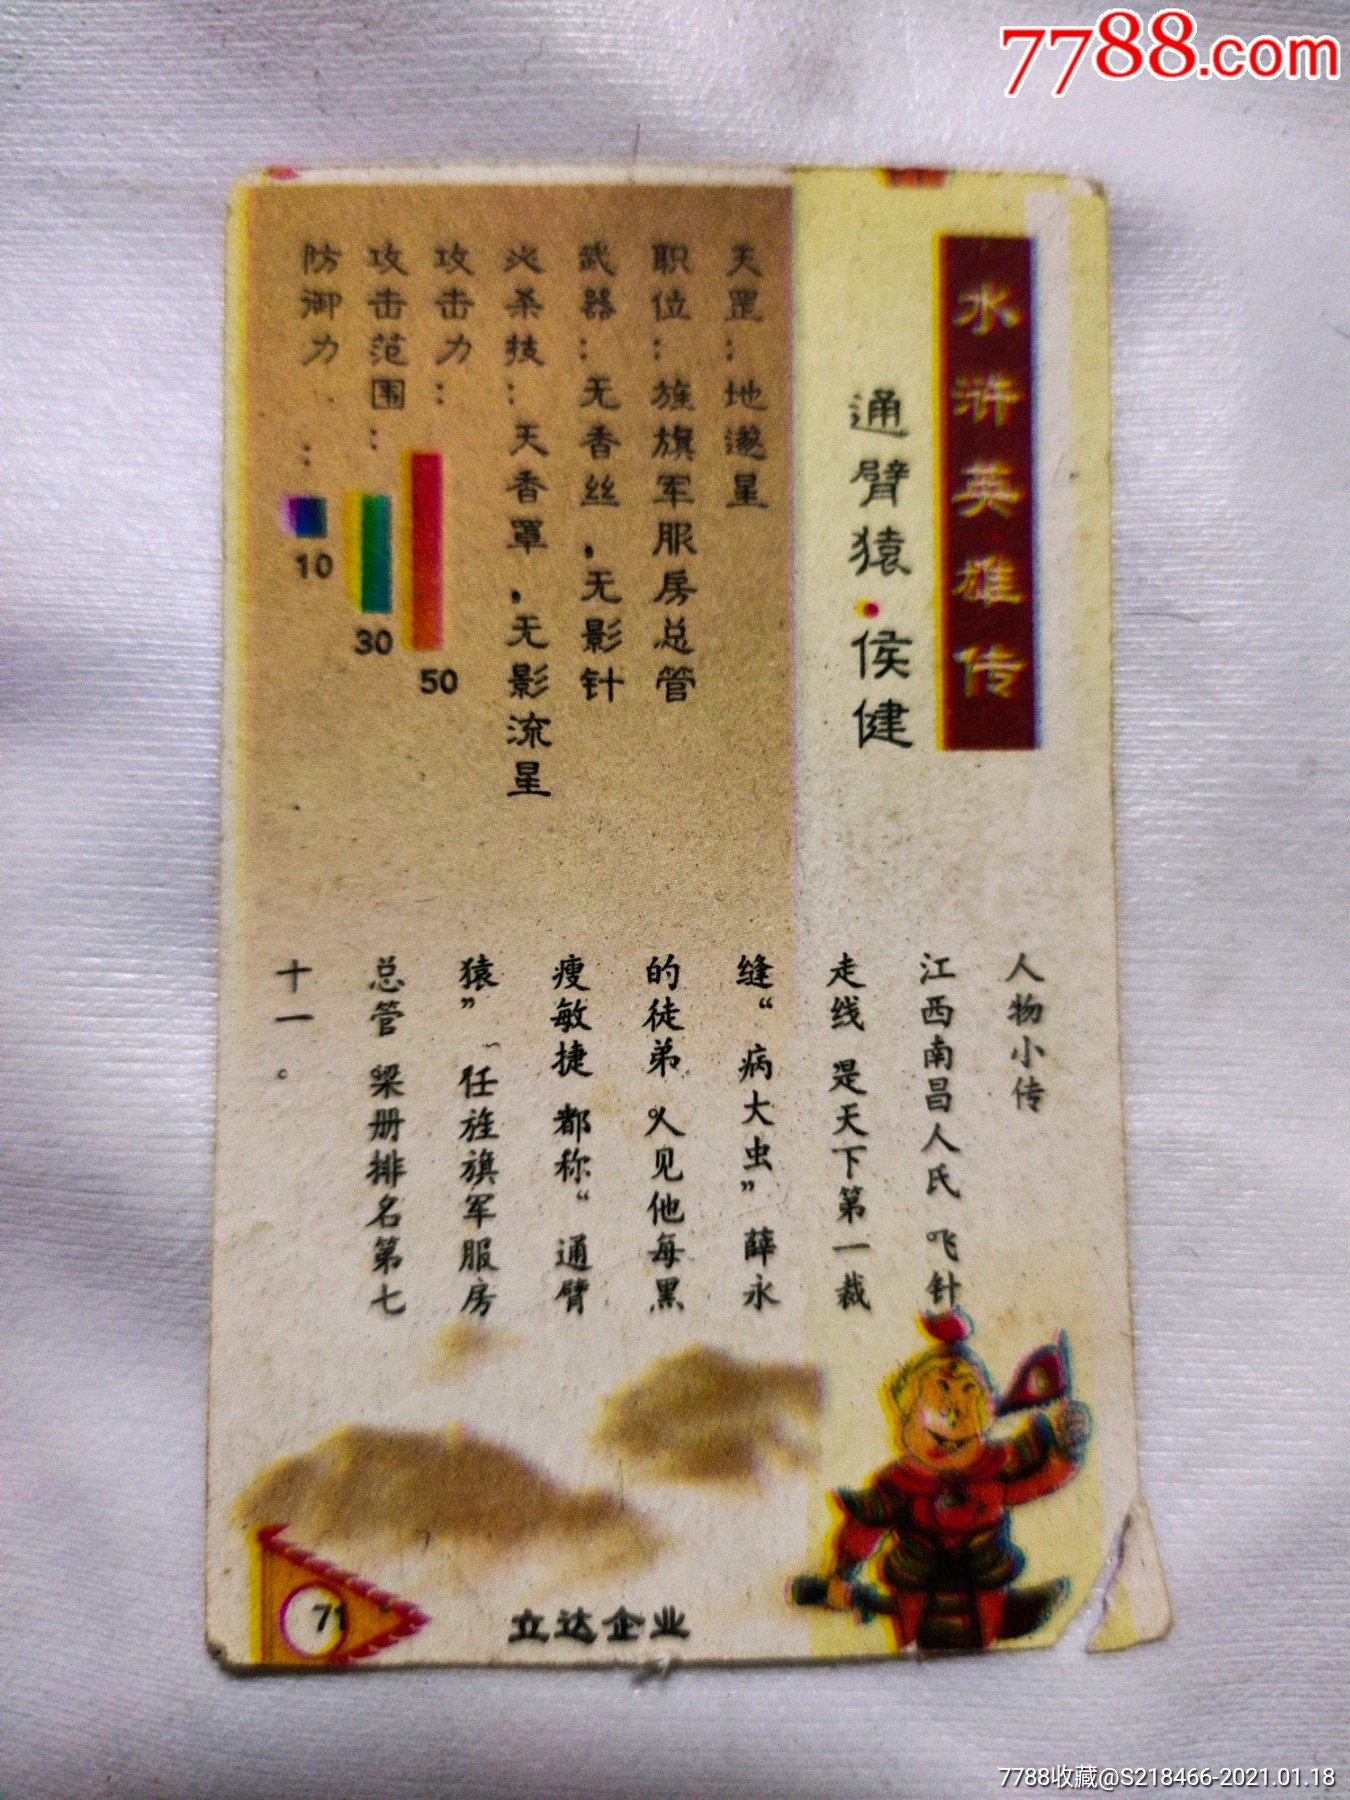 7788.com
水浒英雄传
通臂猿·侯健
天罡：地遂星
职位：旌旗军服房总管
武器：无香丝，无影针
必杀技：天香罩，无影流星
攻击力：
50
攻击范围：
30
防御力：
10
人物小传
江西南昌人氏 飞针
走线 是天下第一裁
缝“病大虫”薛永
的徒弟 人见他每黑
瘦敏捷 都称“通臂
猿” 任旌旗军服房
总管 梁册排名第七
十一。
71
立达企业
7788收藏@S218466-2021.01.18